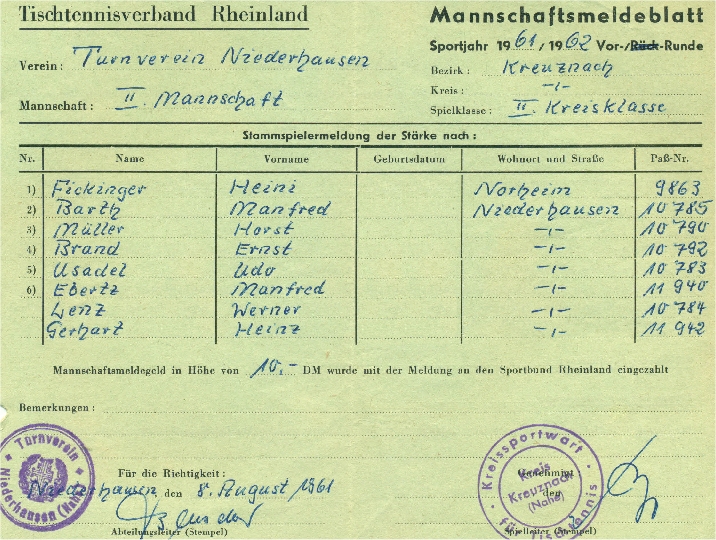 Tischtennisverband Rheinland
Mannschaftsmeldeblatt
Sportjahr 1961/1962 Vor-/Rück-Runde
Verein: Turnverein Niederhausen
Bezirk: Kreuznach
Kreis: -"-
Mannschaft: II. Mannschaft
Spielklasse: II. Kreisklasse
Stammspielermeldung der Stärke nach:
Nr. Name Vorname Geburtsdatum Wohnort und Straße Paß-Nr.
1) Fickinger Heini Norheim 9863
2) Barth Manfred Niederhausen 10 785
3) Müller Horst -"- 10 790
4) Brand Ernst -"- 10 792
5) Usadel Udo -"- 10 783
6) Ebertz Manfred -"- 11 940
Lenz Werner -"- 10 784
Gerhart Heinz -"- 11 942
Mannschaftsmeldegeld in Höhe von 10,- DM wurde mit der Meldung an den Sportbund Rheinland eingezahlt
Bemerkungen:
Turnverein Niederhausen (Nahe)
Für die Richtigkeit:
Niederhausen den 8. August 1961
Abteilungsleiter (Stempel)
Kreissportwart für Tischtennis
Kreis Kreuznach (Nahe)
Genehmigt
den
Spielleiter (Stempel)